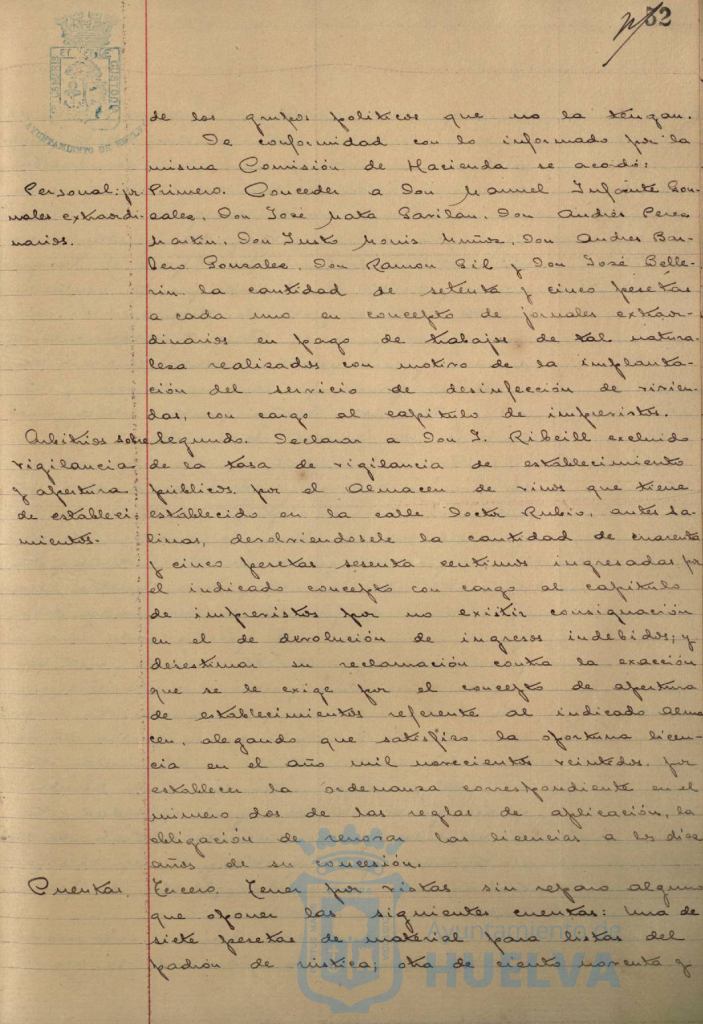 52
AYUNTAMIENTO DE HUELVA
de los grupos politicos que no la tengan.
De conformidad con lo informado por la
misma Comisión de Hacienda se acordó:
Personal: jor
nales extraordi
narios.
Primero. Conceder a Don Manuel Infante Gon
zalez, Don José Mata Gavilan, Don Andrés Perez
Martin, Don Justo Moris Muñoz, Don Andres Bar
bero Gonzalez, Don Ramon Gil y Don José Belle
rin la cantidad de setenta y cinco pesetas
a cada uno en concepto de jornales extraor
dinarios en pago de trabajos de tal natura
leza realizados con motivo de la implanta
ción del servicio de desinfección de vivien
das, con cargo al capitulo de imprevistos.
Arbitrios sobre
vigilancia
y apertura
de estableci
mientos.-
Segundo. Declarar a Don J. Ribeill excluido
de la tasa de vigilancia de establecimiento
públicos, por el Almacen de vinos que tiene
establecido en la calle Doctor Rubio, antes Sa
linas, devolviendosele la cantidad de cuarenta
y cinco pesetas sesenta centimos ingresadas por
el indicado concepto con cargo al capitulo
de imprevistos por no existir consignación
en el de devolución de ingresos indebidos; y
desestimar su reclamación contra la exacción
que se le exige por el concepto de apertura
de establecimientos referente al indicado alma
cen, alegando que satisfizo la oportuna licen
cia en el año mil novecientos veintidos, por
establecer la ordenanza correspondiente en el
número dos de las reglas de aplicación, la
obligación de renovar las licencias a los diez
años de su concesión.
Cuentas.
Tercero. Tener por vistas sin reparo alguno
que oponer las siguientes cuentas: Una de
siete pesetas de material para listas del
padrón de rústica; otra de ciento noventa y
Ayuntamiento de
HUELVA